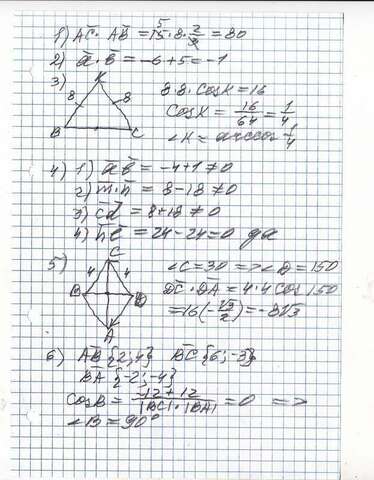 1) AC · AB = 15 · 8 · 2/3 = 80
5
2) a · b = -6 + 5 = -1
3)
K
8 8
B C
8 · 8 · cos K = 16
cos K = 16/64 = 1/4
∠K = arccos 1/4
4) 1) ab = -4+1 ≠ 0
2) m·n = 8-18 ≠ 0
3) cd = 8+18 ≠ 0
4) he = 24-24=0 да
5)
C
4 4
B D
A
∠C = 30 => ∠D = 150
DC · DA = 4 · 4 cos 150
= 16(-√3/2) = -8√3
6) AB {2; 4} BC {6; -3}
BA {-2; -4}
cos B = -12 + 12 / |BC| · |BA| = 0 =>
∠B = 90°